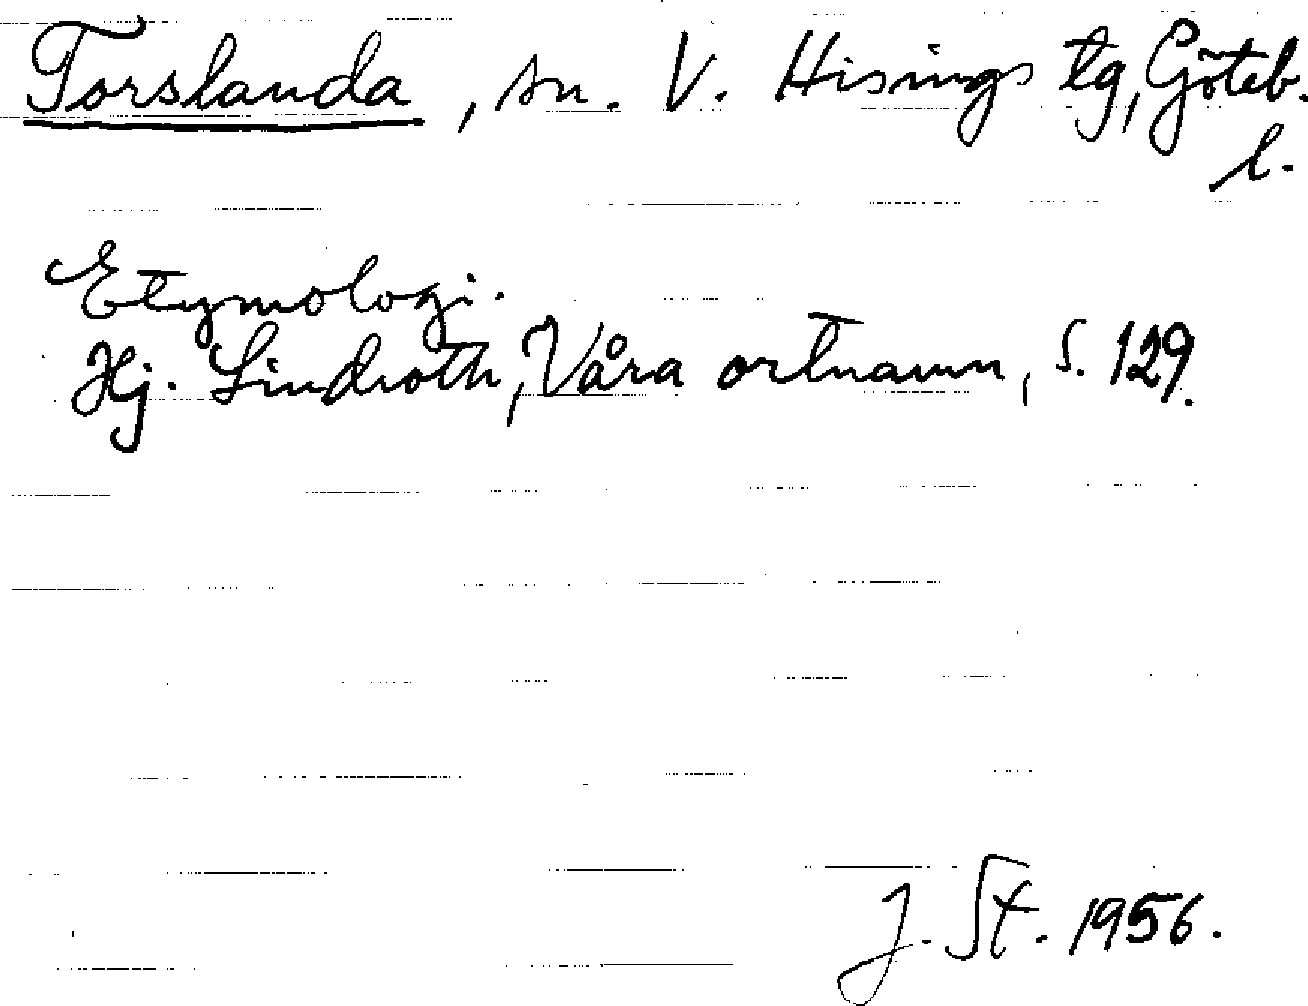 Torslanda, sn. V. Hisings tg, Göteb.
l.
Etymologi.
Hj. Lindroth, Våra ortnamn, s. 129.
J. St. 1956.